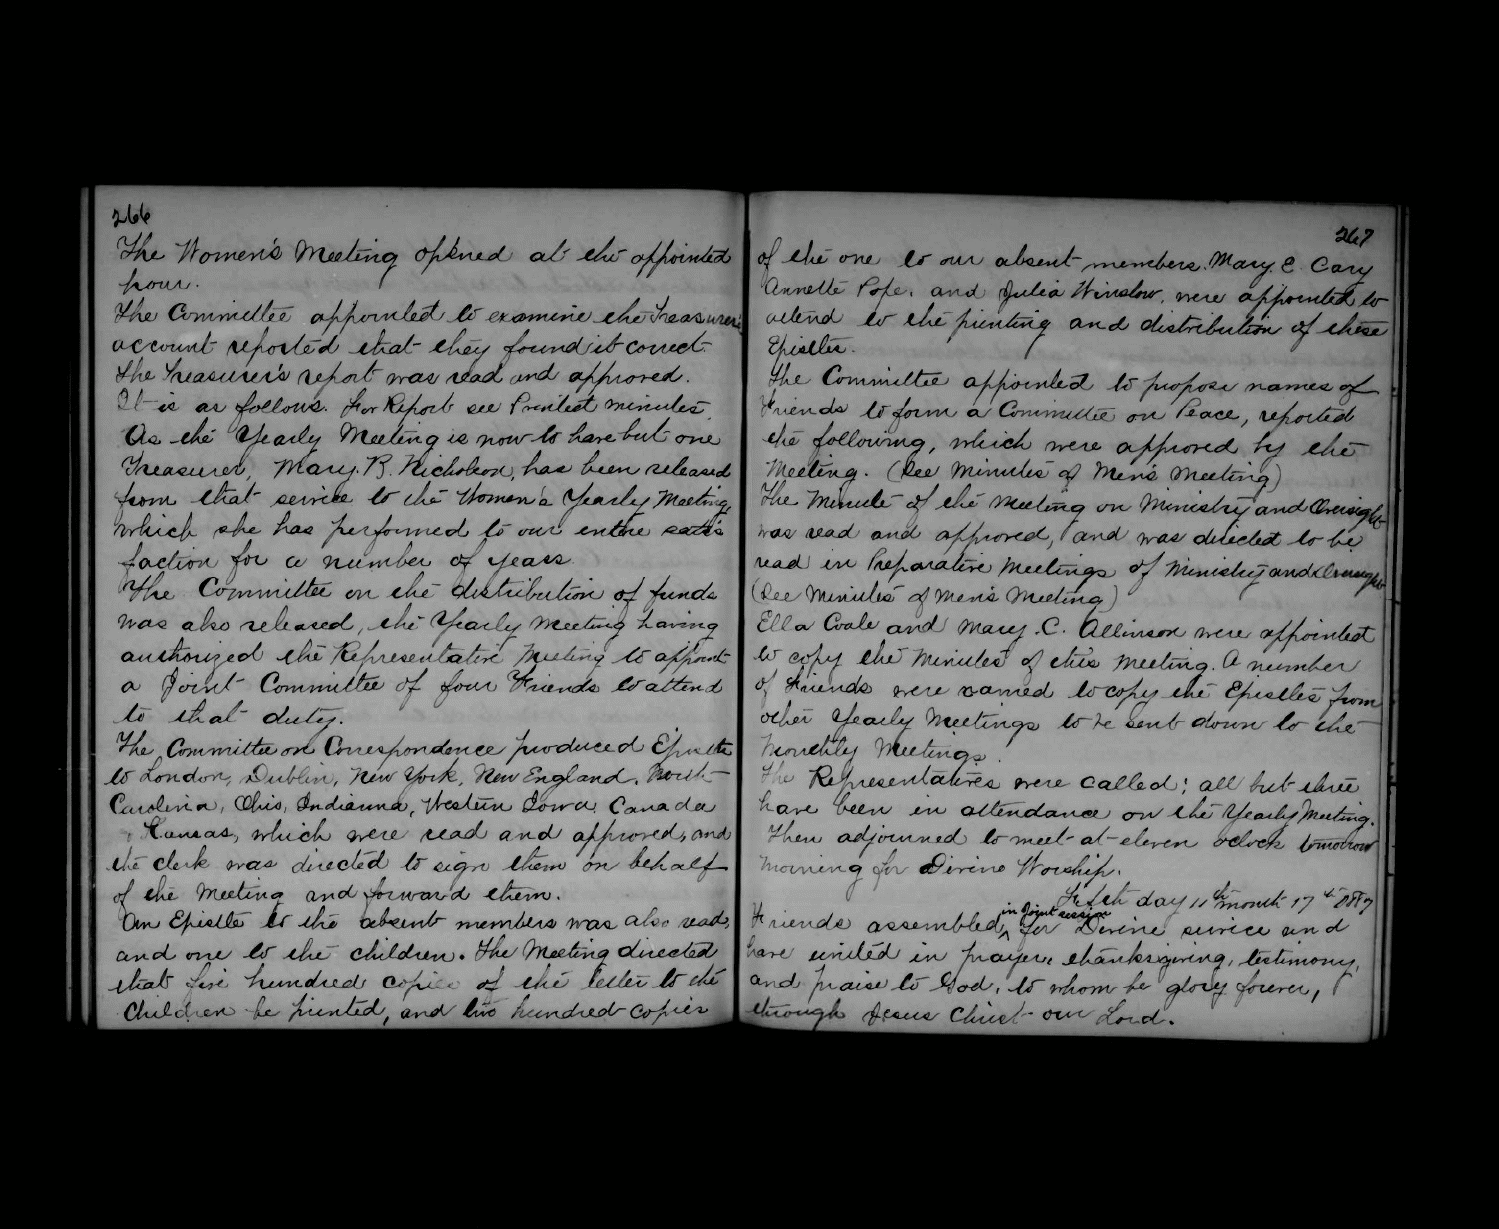 266
The Women's Meeting opened at the appointed
hour.
The Committee appointed to examine the Treasurer's
account reported that they found it correct.
The Treasurer's report was read and approved.
It is as follows. For Report see Printed minutes.
As the Yearly Meeting is now to have but one
Treasurer, Mary. R. Nicholson, has been released
from that service to the Women's Yearly Meeting,
which she has performed to our entire satis
faction for a number of years.
The Committee on the distribution of funds
was also released, the Yearly Meeting having
authorized the Representative Meeting to appoint
a Joint Committee of four Friends to attend
to that duty.
The Committee on Correspondence produced Epistles
to London, Dublin, New York, New England, North
Carolina, Ohio, Indianna, Western Iowa, Canada
Kansas, which were read and approved, and
the clerk was directed to sign them on behalf
of the Meeting and forward them.
An Epistle to the absent members was also read,
and one to the children. The Meeting directed
that five hundred copies of the letter to the
Children be printed, and two hundred copies
267
of the one to our absent members. Mary E. Cary
Annette Pope, and Julia Winslow, were appointed to
attend to the printing and distribution of these
Epistles.
The Committee appointed to propose names of
Friends to form a Committee on Peace, reported
the following, which were approved by the
Meeting. (See Minutes of Men's Meeting)
The Minute of the Meeting on Ministry and Oversight
was read and approved, and was directed to be
read in Preparative Meetings of Ministry and Oversight
(See Minutes of Men's Meeting)
Ella Coale and Mary. C. Allinson were appointed
to copy the Minutes of this Meeting. A number
of Friends were named to copy the Epistles from
other Yearly Meetings to be sent down to the
Monthly Meetings.
The Representatives were called; all but three
have been in attendance on the Yearly Meeting.
Then adjourned to meet at eleven o'clock tomorrow
morning for Divine Worship.
Fifth day 11th month 17th 1887
Friends assembled, in joint session for Divine service and
have united in prayer, thanksgiving, testimony,
and praise to God, to whom be glory forever,
through Jesus Christ our Lord.